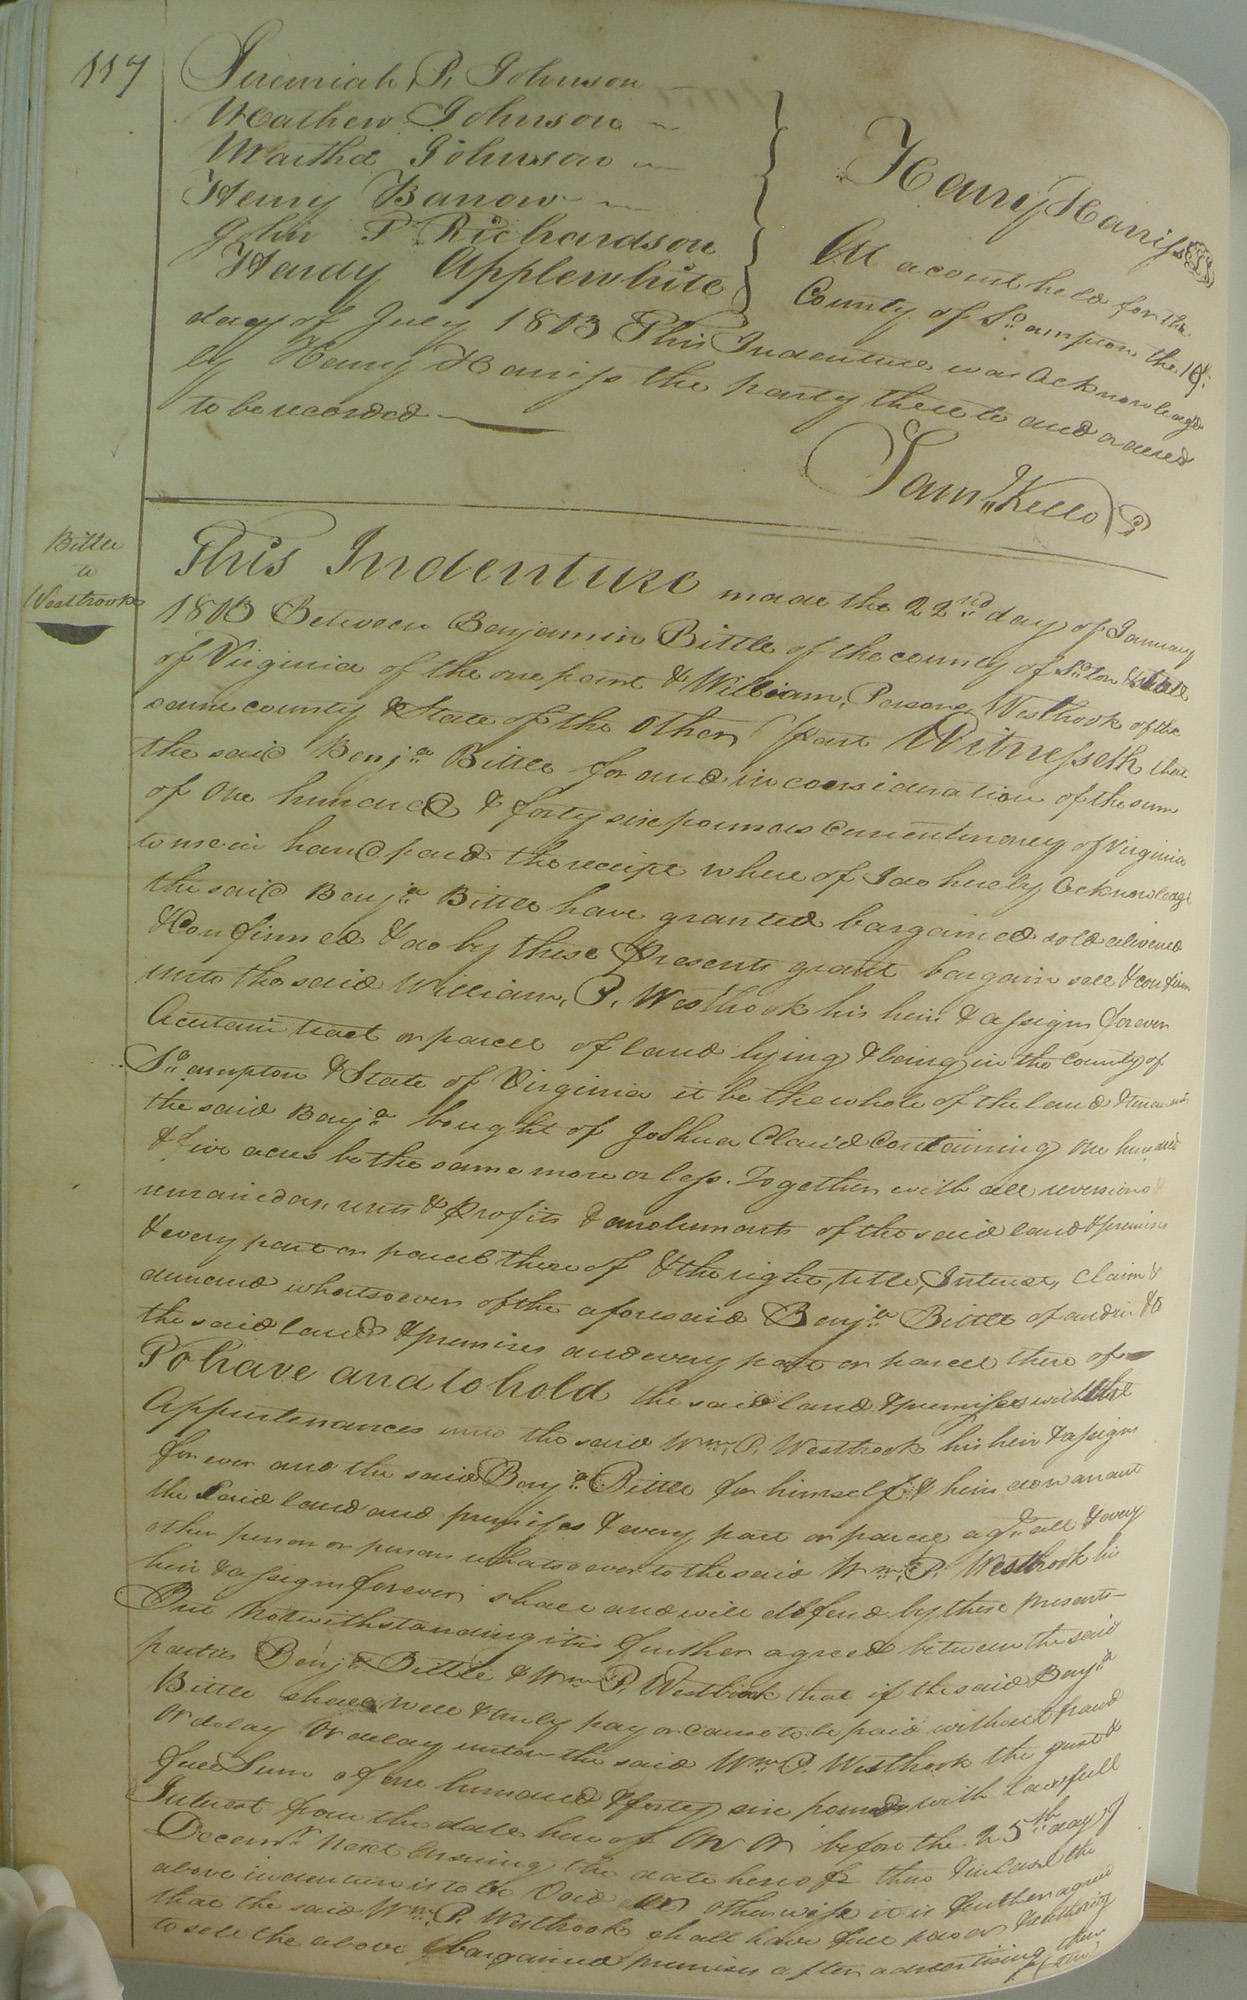 117
Jeremiah P. Johnson
Mathew Johnson
Martha Johnson
Henry Barrow
John P Richardson
Hardy Applewhite
Harry Harriss
At a court held for the
County of So.ampton the 18
day of July 1803 This Indenture was Acknowledgd
by Harry Harriss the party thereto and ordered
to be recorded
Saml Kello C
Bittle
to
Westbrook
This Indenture made the 22nd day of January
1803 Between Benjamin Bittle of the county of So.ton & State
of Virginia of the one part & William Persons Westbrook of the
same county & State of the other part Witnesseth that
the said Benja Bittle for and in consideration of the sum
of One hundred & forty six pounds Current money of Virginia
to me in hand paid the receipt where of I do hereby Acknowledge
the said Benja Bittle have granted bargained sold alivened
& Confirmed & do by these Presents grant bargain sell & confirm
unto the said William P. Westbrook his heirs & assigns forever
A certain tract or parcel of land lying & being in the County of
So.ampton & State of Virginia it be the whole of the land & tenements
the said Benja bought of Joshua Claud Containing one hundred
& five acres be the same more or less. Together with all reversions &
remainders, rents & Profits & emoluments of the said land & premises
& every part or parcel there of & the right, title, Interest, Claim &
demand whatsoever of the aforesaid Benja Bittle of and in & to
the said land & premises and every part or parcel there of
To have and to hold the said land & premises with the
Appurtenances unto the said Wm. P. Westbrook his heirs & assigns
for ever and the said Benja Bittle for himself & heirs do warrant
the said land and premises & every part or parcel agst all & every
other person or persons whatsoever to the said Wm. P. Westbrook his
heirs & assigns forever shall and will defend by these presents
But notwithstanding it is further agreed between the said
parties Benja Bittle & Wm P. Westbrook that if the said Benja
Bittle shall well & truly pay or cause to be paid without fraud
or delay or delay unto the said Wm P. Westbrook the just &
full Sum of one hundred & forty six pounds with lawfull
Interest from the date here of on or before the 25th day of
Decemr next Ensuing the date hereof then & in case the
above indenture is to be Void otherwise it is further agreed
that the said Wm. P. Westbrook shall have full power & authority
to sell the above bargained premises after advertising